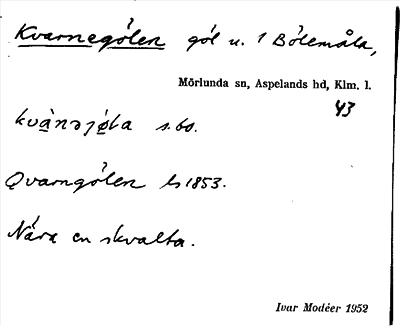 Kvarnegölen göl u. 1 Bölemåla,
Mörlunda sn, Aspelands hd, Klm. l.
43
s. bo.
Qvarngölen ls 1853.
Nära en skvalta.
Ivar Modéer 1952